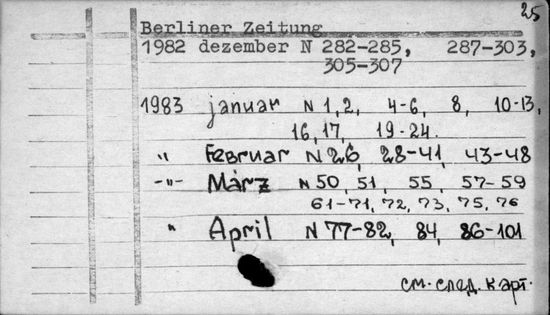 25
Berliner Zeitung
1982 dezember N 282-285, 287-303,
305-307
1983 januar N 1,2, 4-6, 8, 10-13,
16,17, 19-24.
" Februar N 26, 28-41, 43-48
-"- März N 50, 51, 55, 57-59
61-71, 72, 73, 75, 76
" April N 77-82, 84, 86-101
см. след. карт.